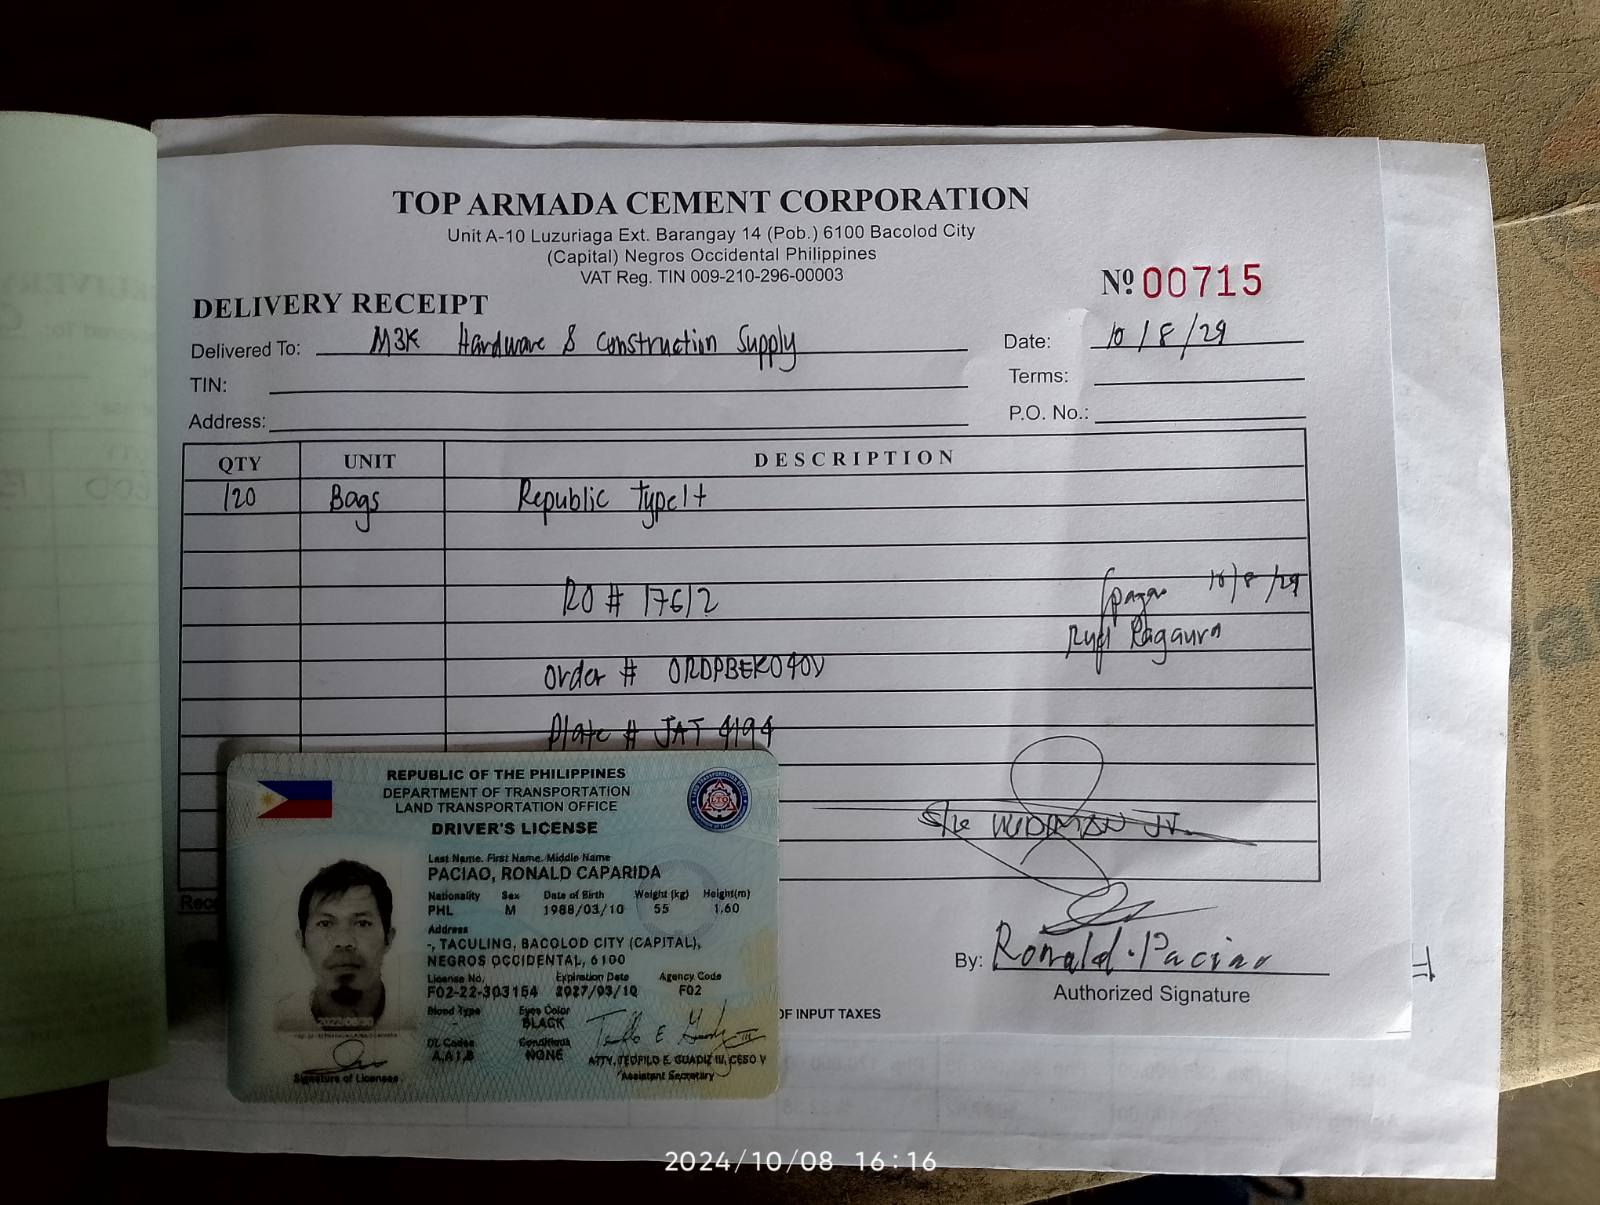 TOP ARMADA CEMENT CORPORATION
Unit A-10 Luzuriaga Ext. Barangay 14 (Pob.) 6100 Bacolod City
(Capital) Negros Occidental Philippines
VAT Reg. TIN 009-210-296-00003
Nº 00715
DELIVERY RECEIPT
Delivered To: M3K Hardware & Construction Supply
Date: 10/8/24
TIN:
Terms:
Address:
P.O. No.:
QTY UNIT DESCRIPTION
120 Bags Republic Type1+
RO # 17612
10/8/24
Order # ORDPBEKO40V
Plate # JAT 4194
REPUBLIC OF THE PHILIPPINES
DEPARTMENT OF TRANSPORTATION
LAND TRANSPORTATION OFFICE
DRIVER'S LICENSE
Last Name. First Name. Middle Name
PACIAO, RONALD CAPARIDA
Nationality Sex Date of Birth Weight (kg) Height(m)
PHL M 1988/03/10 55 1.60
Address
-, TACULING, BACOLOD CITY (CAPITAL),
NEGROS OCCIDENTAL, 6100
License No. Expiration Date Agency Code
F02-22-303154 2027/03/10 F02
Blood Type Eyes Color
- BLACK
DL Codes Conditions
A,A1,B NONE
ATTY. TEOFILO E. GUADIZ III, CESO V
Assistant Secretary
Signature of Licensee
Rec
By: Ronald Paciao
Authorized Signature
OF INPUT TAXES
2024/10/08 16:16